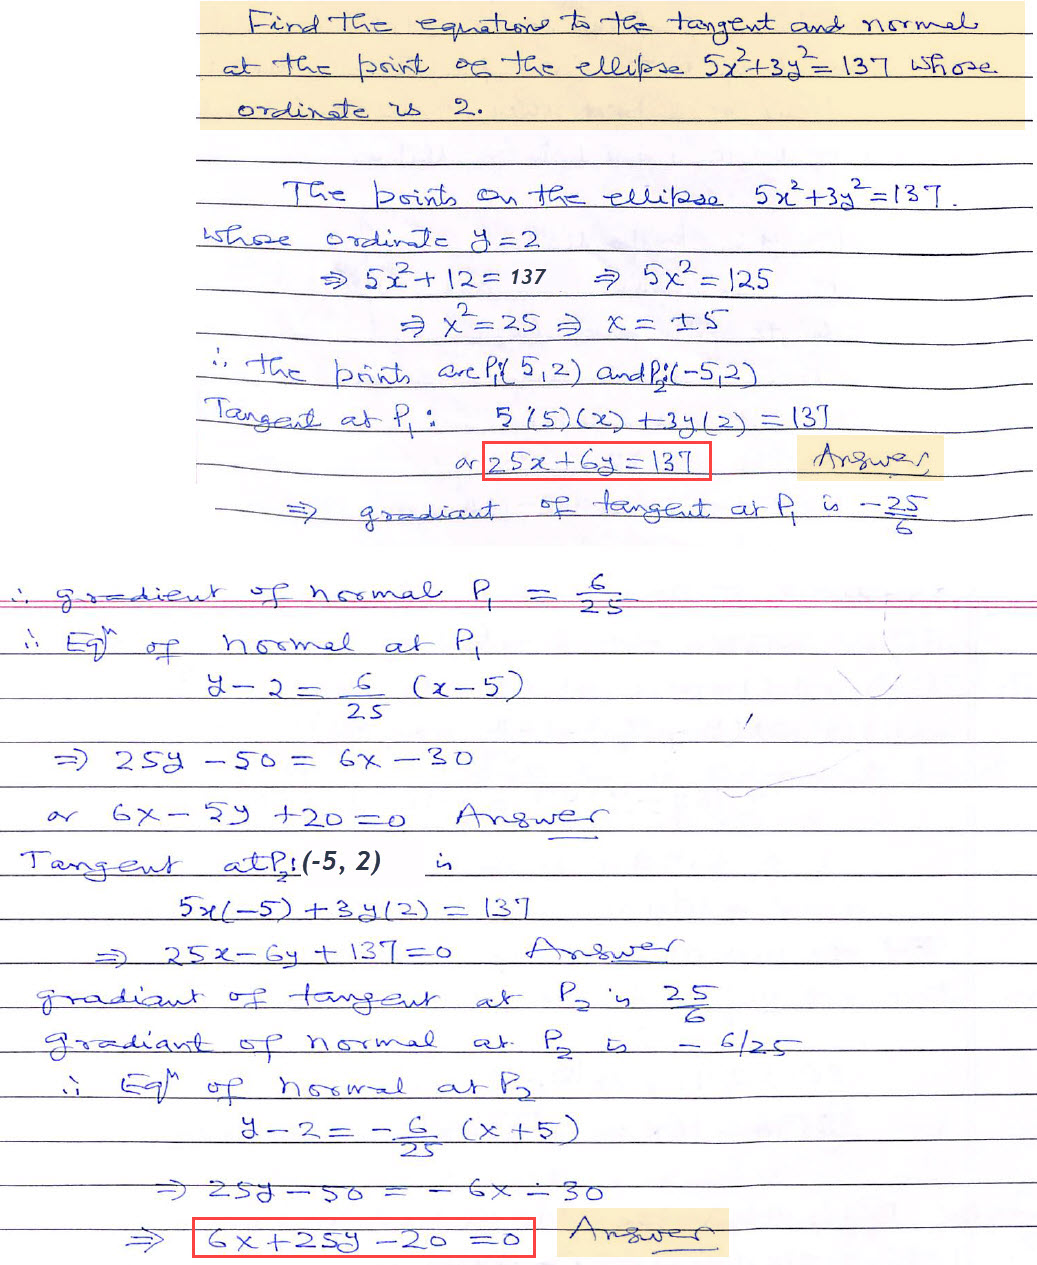 Find the equations to the tangent and normal
at the point of the ellipse 5x²+3y²=137 whose
ordinate is 2.
The points on the ellipse 5x²+3y²=137.
whose ordinate y=2
⇒ 5x²+12=137 ⇒ 5x²=125
⇒ x²=25 ⇒ x=±5
∴ the points are P₁:(5,2) and P₂:(-5,2)
Tangent at P₁: 5(5)(x)+3y(2)=137
or 25x+6y=137 Answer
⇒ gradiant of tangent at P₁ is -25/6
∴ gradient of normal P₁ = 6/25
∴ Eqⁿ of normal at P₁
y-2=6/25 (x-5)
⇒ 25y-50=6x-30
or 6x-5y+20=0 Answer
Tangent at P₂:(-5, 2) is
5x(-5)+3y(2)=137
⇒ 25x-6y+137=0 Answer
gradiant of tangent at P₂ is 25/6
gradiant of normal at P₂ is -6/25
∴ Eqⁿ of normal at P₂
y-2=-6/25 (x+5)
⇒ 25y-50=-6x-30
⇒ 6x+25y-20=0 Answer